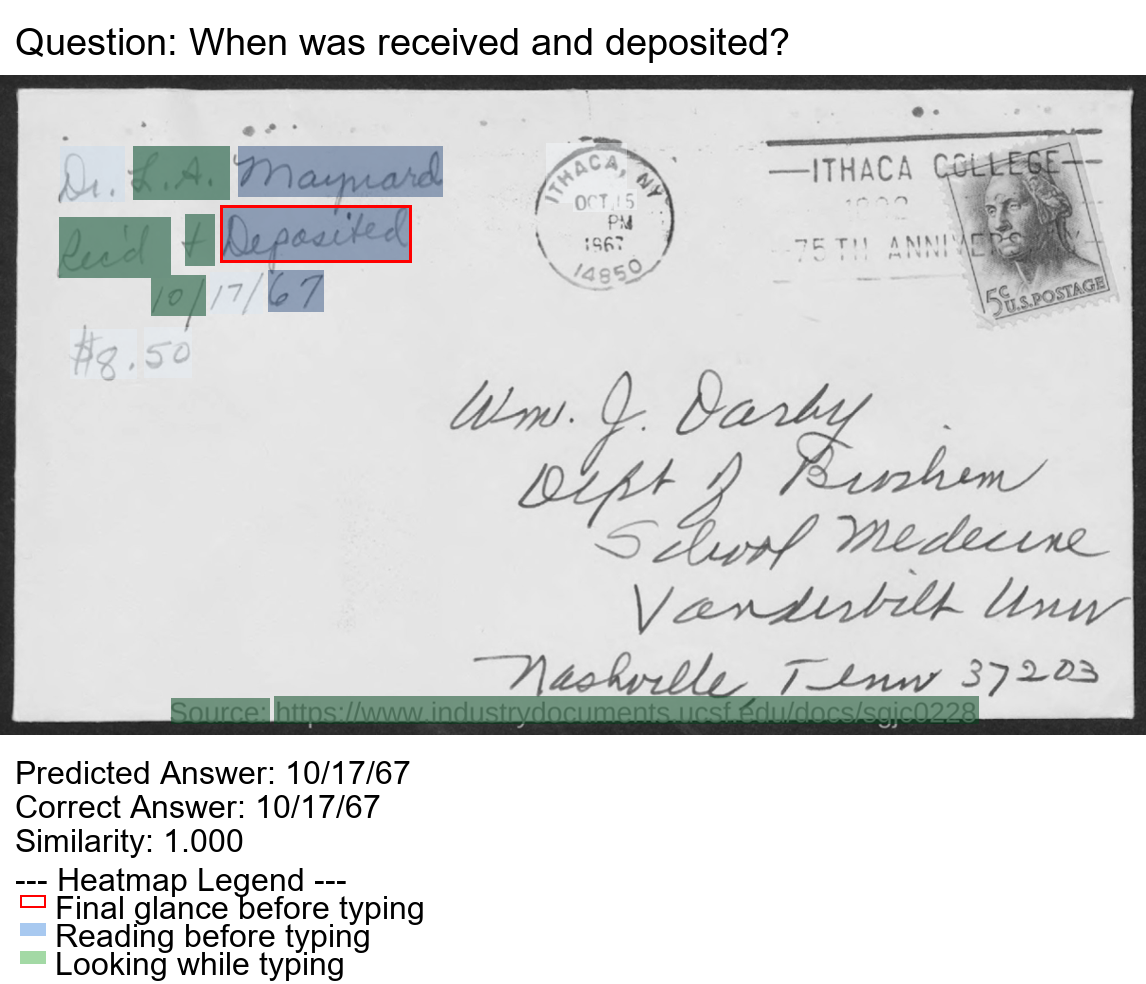 Question: When was received and deposited?
Dr. L.A. Maynard
Rec'd + Deposited
10/17/67
$8.50
ITHACA, NY
OCT 15
PM
1967
14850
ITHACA COLLEGE
75TH ANNIVERS
5c U.S. POSTAGE
Wm. J. Darby
Dept of Biochem
School Medecine
Vanderbilt Univ
Nashville, Tenn 37203
Source: https://www.industrydocuments.ucsf.edu/docs/sgjc0228
Predicted Answer: 10/17/67
Correct Answer: 10/17/67
Similarity: 1.000
--- Heatmap Legend ---
Final glance before typing
Reading before typing
Looking while typing